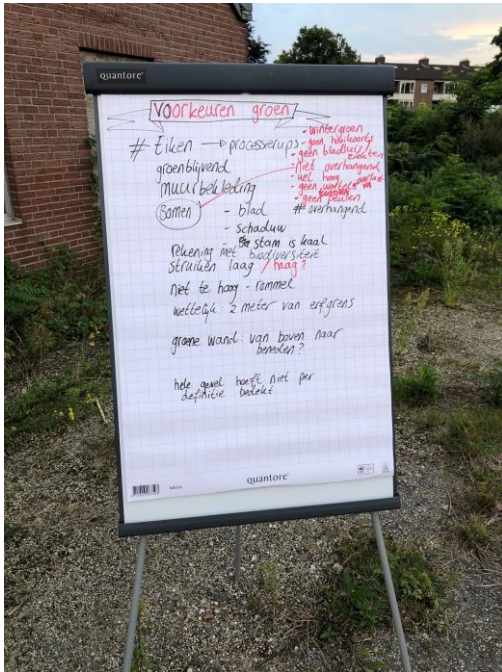 quantore
voorkeuren groen
# Eiken → processerups
groenblijvend
muurbekleding
Bomen - blad
- schaduw
stam is kaal
- wintergroen
- geen
- geen bladluis / ziekten
- niet overhangend
- wel hoog
- geen wortels
- geen peulen
# overhangend
rekening met biodiversiteit
struiken laag / haag?
niet te hoog - rommel
wettelijk: 2 meter van erfgrens
groene wand: van boven naar
beneden?
hele gevel hoeft niet per
definitie bedekt
quantore